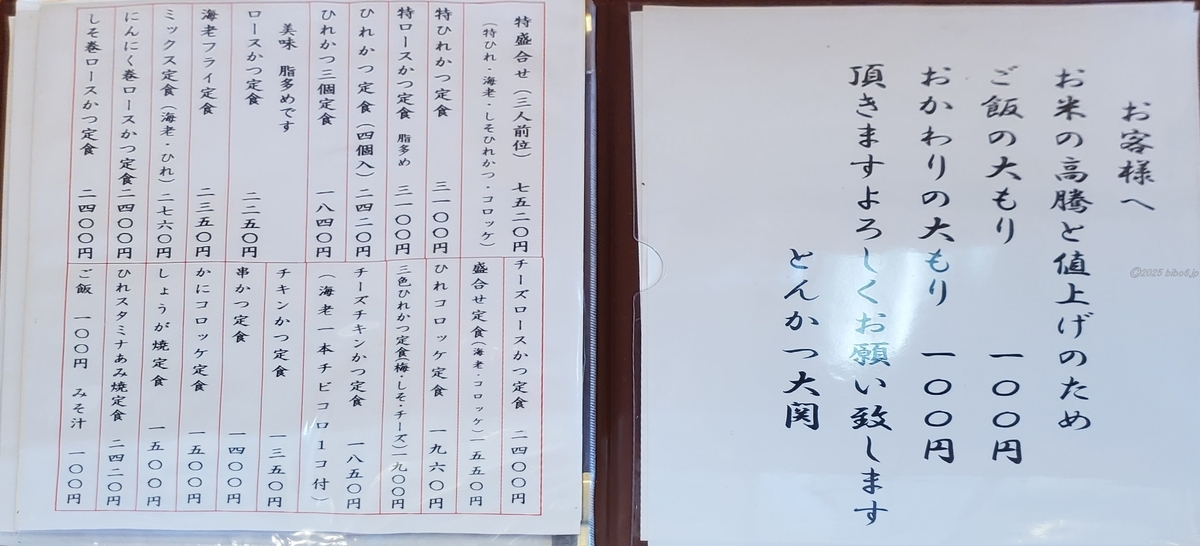 お客様へ
お米の高騰と値上げのため
ご飯の大もり 一〇〇円
おかわりの大もり 一〇〇円
頂きますよろしくお願い致します
とんかつ大関
特盛合せ（三人前位） 七五二〇円
（特ひれ・海老・しそひれかつ・コロッケ）
特ひれかつ定食 三一〇〇円
特ロースかつ定食 脂多め 三一〇〇円
ひれかつ定食（四個入）二四二〇円
ひれかつ三個定食 一八四〇円
美味 脂多めです
ロースかつ定食 二二五〇円
海老フライ定食 二三五〇円
ミックス定食（海老・ひれ）二七六〇円
にんにく巻ロースかつ定食二四〇〇円
しそ巻ロースかつ定食 二四〇〇円
チーズロースかつ定食 二四〇〇円
盛合せ定食（海老・コロッケ）一五五〇円
ひれコロッケ定食 一九六〇円
三色ひれかつ定食（梅・しそ・チーズ）一九〇〇円
チーズチキンかつ定食 一八五〇円
（海老一本チビコロ1コ付）
チキンかつ定食 一三五〇円
串かつ定食 一四〇〇円
かにコロッケ定食 一五〇〇円
しょうが焼定食 一五〇〇円
ひれスタミナあみ焼定食 二四二〇円
ご飯 一〇〇円 みそ汁 一〇〇円
©2025 bibo6.jp